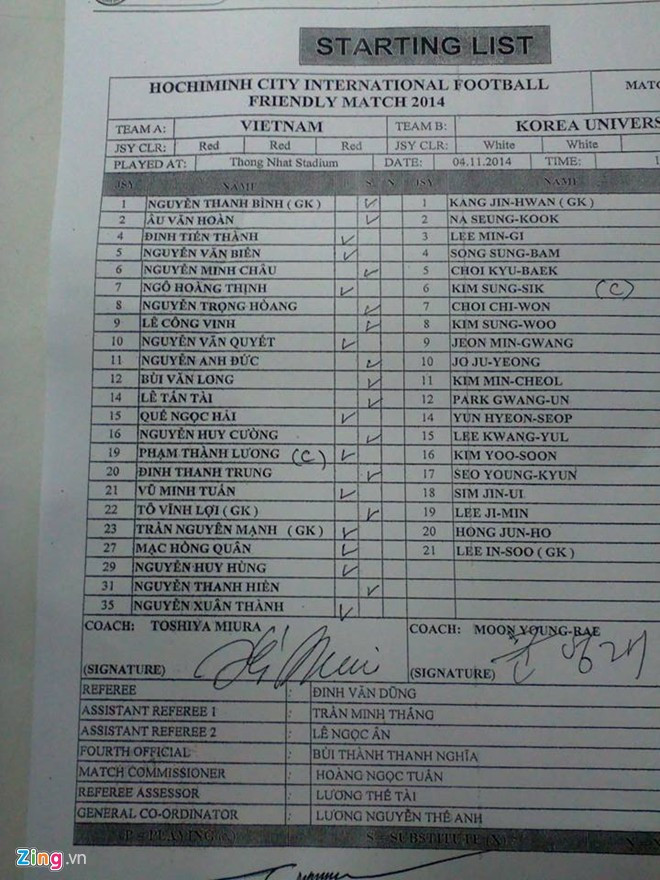 STARTING LIST
HOCHIMINH CITY INTERNATIONAL FOOTBALL
FRIENDLY MATCH 2014
TEAM A: VIETNAM TEAM B: KOREA
JSY CLR: Red Red Red JSY CLR: White White
PLAYED AT: Thong Nhat Stadium DATE: 04.11.2014 TIME:
JSY NAME S N JSY NAME
1 NGUYỄN THANH BÌNH ( GK ) 1 KANG JIN-HWAN ( GK )
2 ÂU VĂN HOÀN 2 NA SEUNG-KOOK
4 ĐINH TIẾN THÀNH 3 LEE MIN-GI
5 NGUYỄN VĂN BIỂN 4 SONG SUNG-BAM
6 NGUYỄN MINH CHÂU 5 CHOI KYU-BAEK
7 NGÔ HOÀNG THỊNH 6 KIM SUNG-SIK (C)
8 NGUYỄN TRỌNG HOÀNG 7 CHOI CHI-WON
9 LÊ CÔNG VINH 8 KIM SUNG-WOO
10 NGUYỄN VĂN QUYẾT 9 JEON MIN-GWANG
11 NGUYỄN ANH ĐỨC 10 JO JU-YEONG
12 BÙI VĂN LONG 11 KIM MIN-CHEOL
14 LÊ TẤN TÀI 12 PARK GWANG-UN
15 QUẾ NGỌC HẢI 14 YUN HYEON-SEOP
16 NGUYỄN HUY CƯỜNG 15 LEE KWANG-YUL
19 PHẠM THÀNH LƯƠNG (C) 16 KIM YOO-SOON
20 ĐINH THANH TRUNG 17 SEO YOUNG-KYUN
21 VŨ MINH TUẤN 18 SIM JIN-UI
22 TÔ VĨNH LỢI ( GK ) 19 LEE JI-MIN
23 TRẦN NGUYÊN MẠNH ( GK ) 20 HONG JUN-HO
27 MẠC HỒNG QUÂN 21 LEE IN-SOO ( GK )
29 NGUYỄN HUY HÙNG
31 NGUYỄN THANH HIỀN
35 NGUYỄN XUÂN THÀNH
COACH: TOSHIYA MIURA COACH: MOON YOUNG-RAE
(SIGNATURE) (SIGNATURE)
REFEREE : ĐINH VĂN DŨNG
ASSISTANT REFEREE 1 : TRẦN MINH THẮNG
ASSISTANT REFEREE 2 : LÊ NGỌC ÂN
FOURTH OFFICIAL : BÙI THÀNH THANH NGHĨA
MATCH COMMISSIONER : HOÀNG NGỌC TUẤN
REFEREE ASSESSOR : LƯƠNG THẾ TÀI
GENERAL CO-ORDINATOR : LƯƠNG NGUYỄN THẾ ANH
P = PLAYING S = SUBSTITUTE (X)
Zing.vn